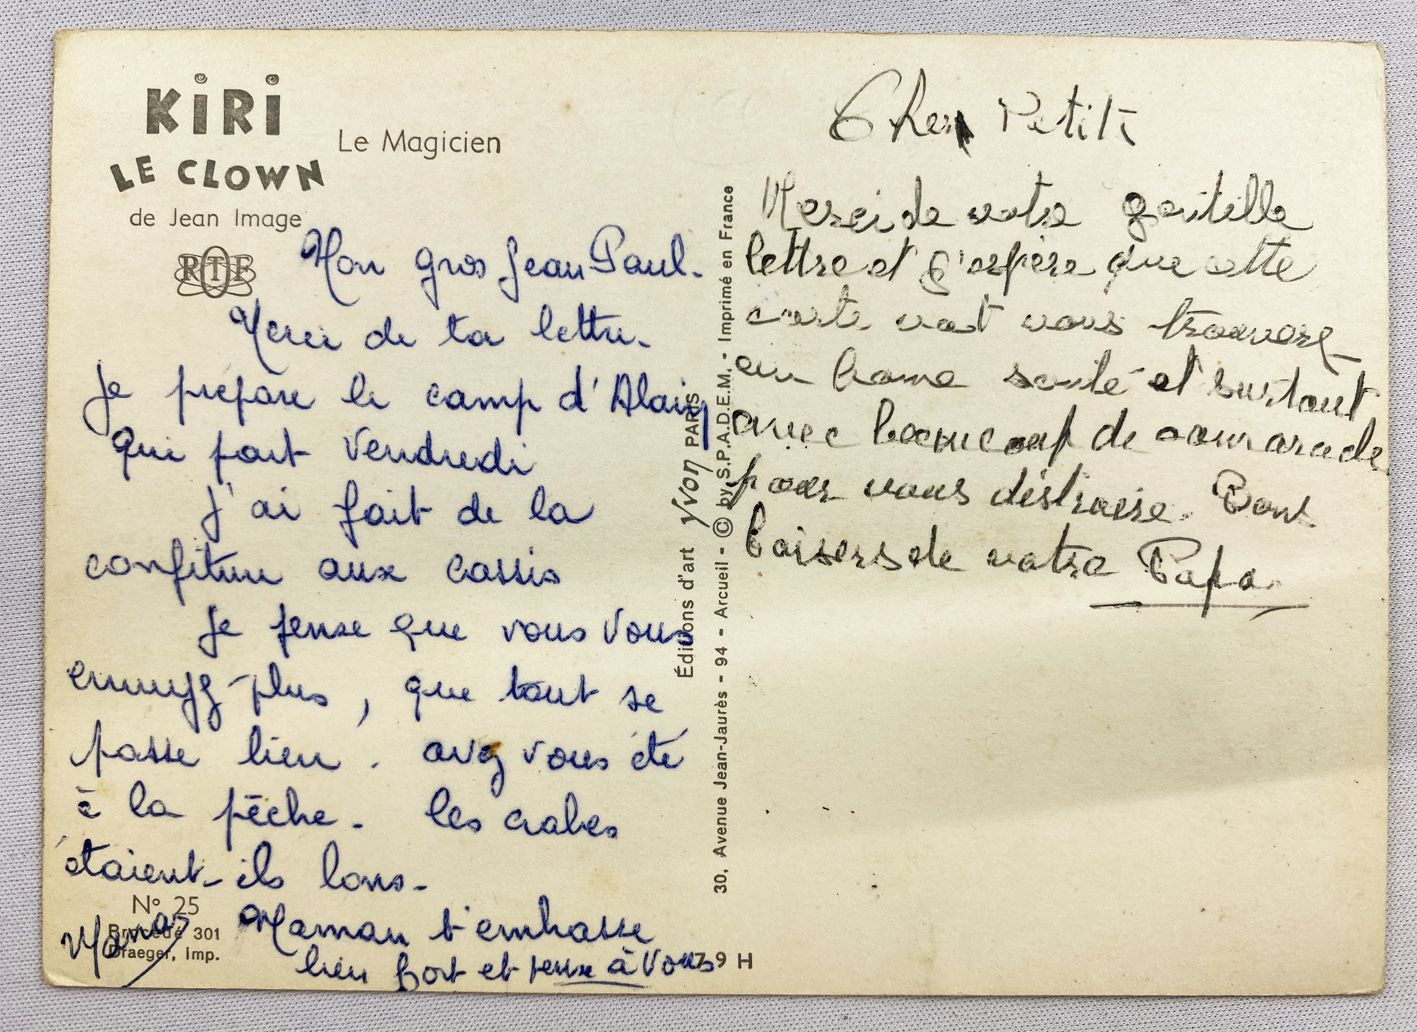 KiRi
LE CLOWN
Le Magicien
de Jean Image
RTF
Mon gros Jean Paul.
Merci de ta lettre.
Je prépare le camp d'Alain
qui part Vendredi
J'ai fait de la
confiture aux cassis
Je pense que vous vous
ennuyez plus, que tout se
passe bien. avez vous été
à la pêche. les crabes
étaient-ils bons.
Maman t'embrasse
bien fort et pense à vous
N° 25
Procédé 301
Draeger, Imp.
79 H
Éditions d'art Yvon PARIS
30, Avenue Jean-Jaurès - 94 - Arcueil - © by S.P.A.D.E.M. - Imprimé en France
Cher Petit
Merci de votre gentille
lettre et j'espère que cette
carte vat vous trouvere
en bonne santé et surtout
avec beaucoup de camarade
pour vous distraire. Bons
baisers de votre Papa